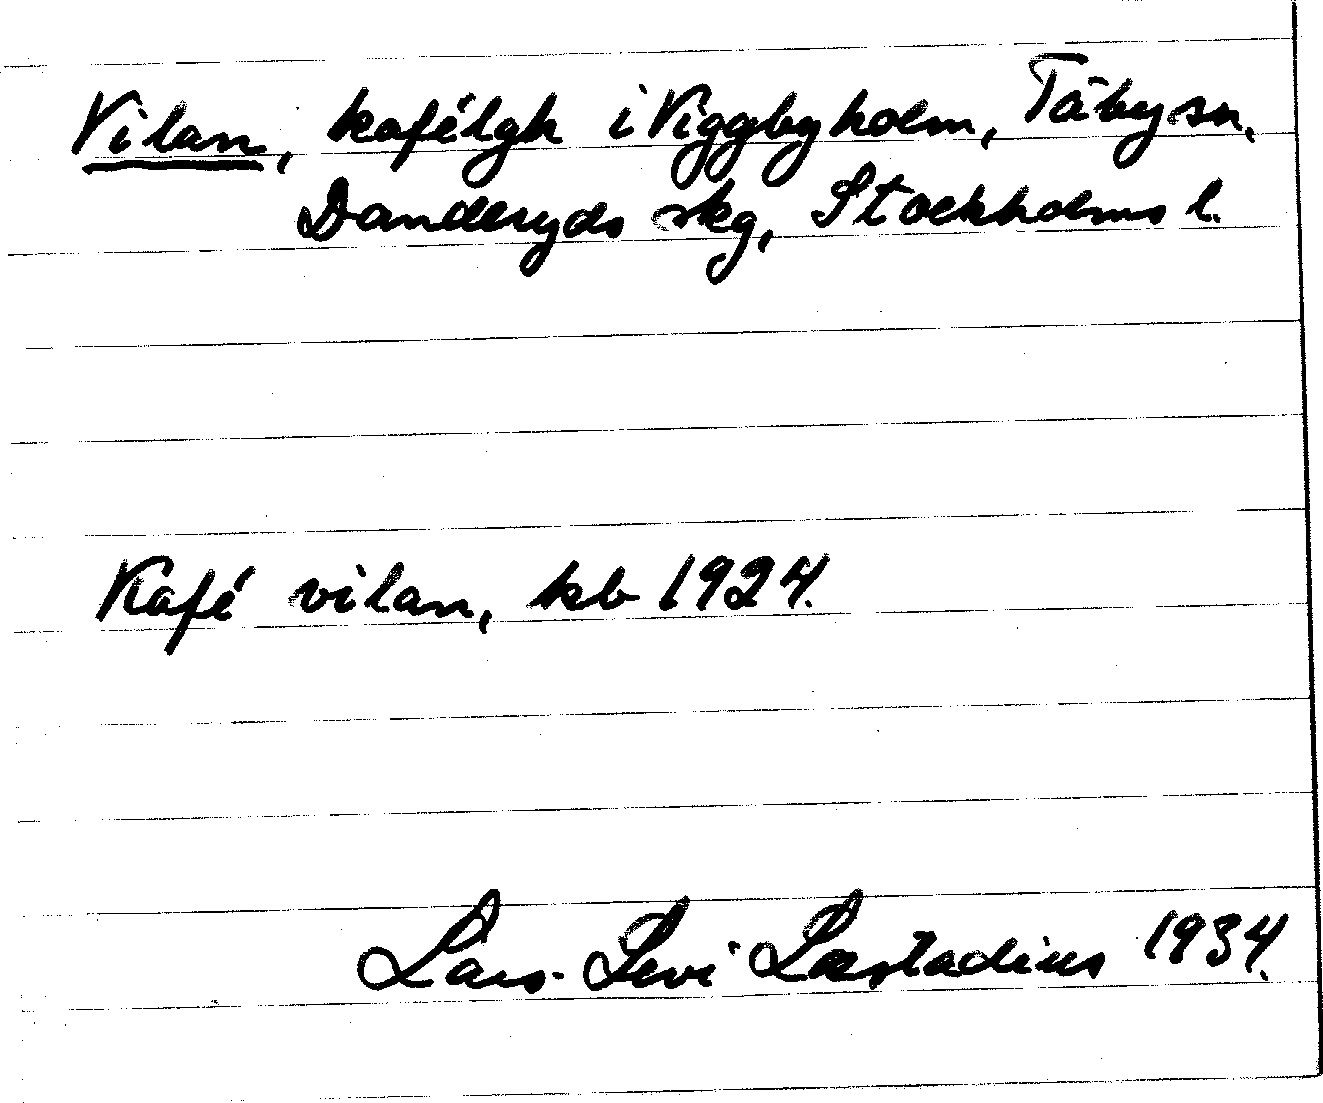 Vilan, kafélgh i Viggbyholm, Täby sn,
Danderyds skg, Stockholms l.
Kafé vilan, kb 1924.
Lars-Levi Læstadius 1934.